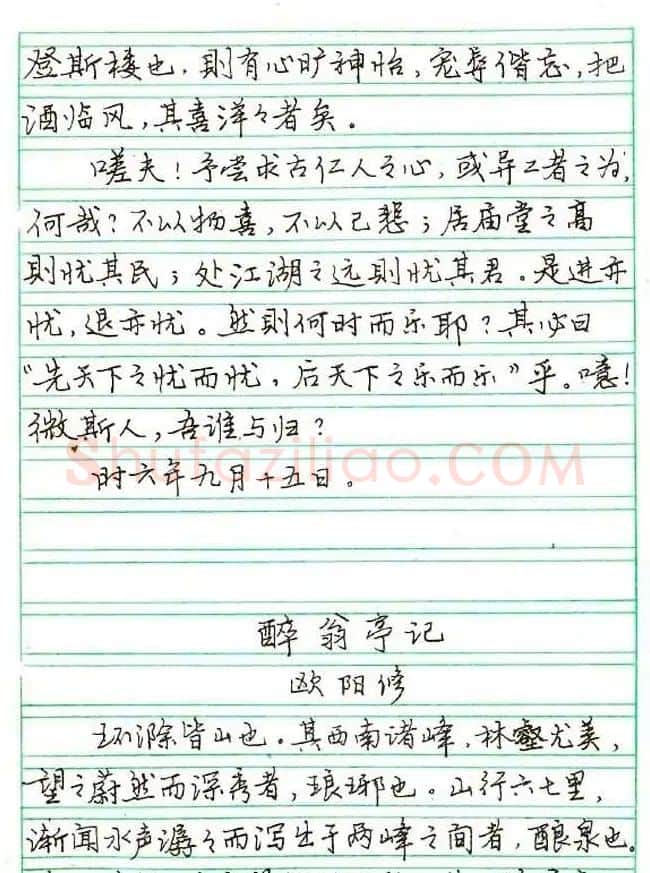 登斯楼也，则有心旷神怡，宠辱偕忘，把
酒临风，其喜洋々者矣。
嗟夫！予尝求古仁人之心，或异二者之为，
何哉？不以物喜，不以己悲；居庙堂之高
则忧其民；处江湖之远则忧其君。是进亦
忧，退亦忧。然则何时而乐耶？其必曰
“先天下之忧而忧，后天下之乐而乐”乎。噫！
微斯人，吾谁与归？
Shufaziliao.COM
时六年九月十五日。
醉翁亭记
欧阳修
环滁皆山也。其西南诸峰，林壑尤美，
望之蔚然而深秀者，琅琊也。山行六七里，
渐闻水声潺々而泻出于两峰之间者，酿泉也。